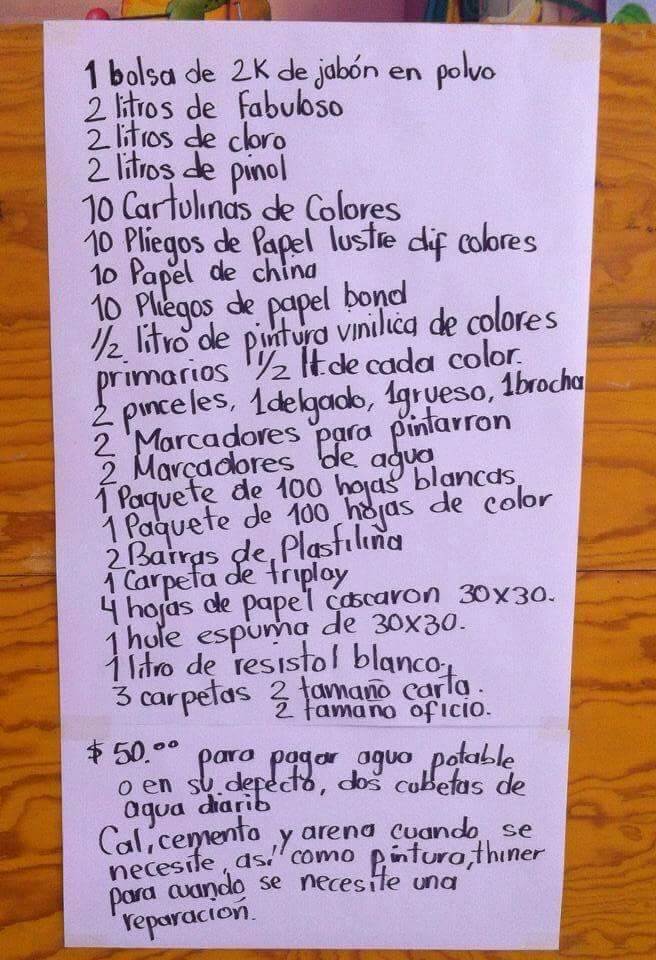 1 bolsa de 2K de jabón en polvo
2 litros de Fabuloso
2 litros de cloro
2 litros de pinol
10 Cartulinas de Colores
10 Pliegos de Papel lustre dif colores
10 Papel de china
10 Pliegos de papel bond
1/2 litro de pintura vinilica de colores
primarios 1/2 lt. de cada color.
2 pinceles, 1delgado, 1grueso, 1brocha
2 Marcadores para pintarron
2 Marcadores de agua
1 Paquete de 100 hojas blancas
1 Paquete de 100 hojas de color
2 Barras de Plastiliña
1 Carpeta de triplay
4 hojas de papel cascaron 30x30.
1 hule espuma de 30x30.
1 litro de resistol blanco.
3 carpetas 2 tamaño carta.
2 tamaño oficio.
$ 50.00 para pagar agua potable
o en su defecto, dos cubetas de
agua diario
Cal, cemento y arena cuando se
necesite, así como pintura, thiner
para cuando se necesite una
reparación.